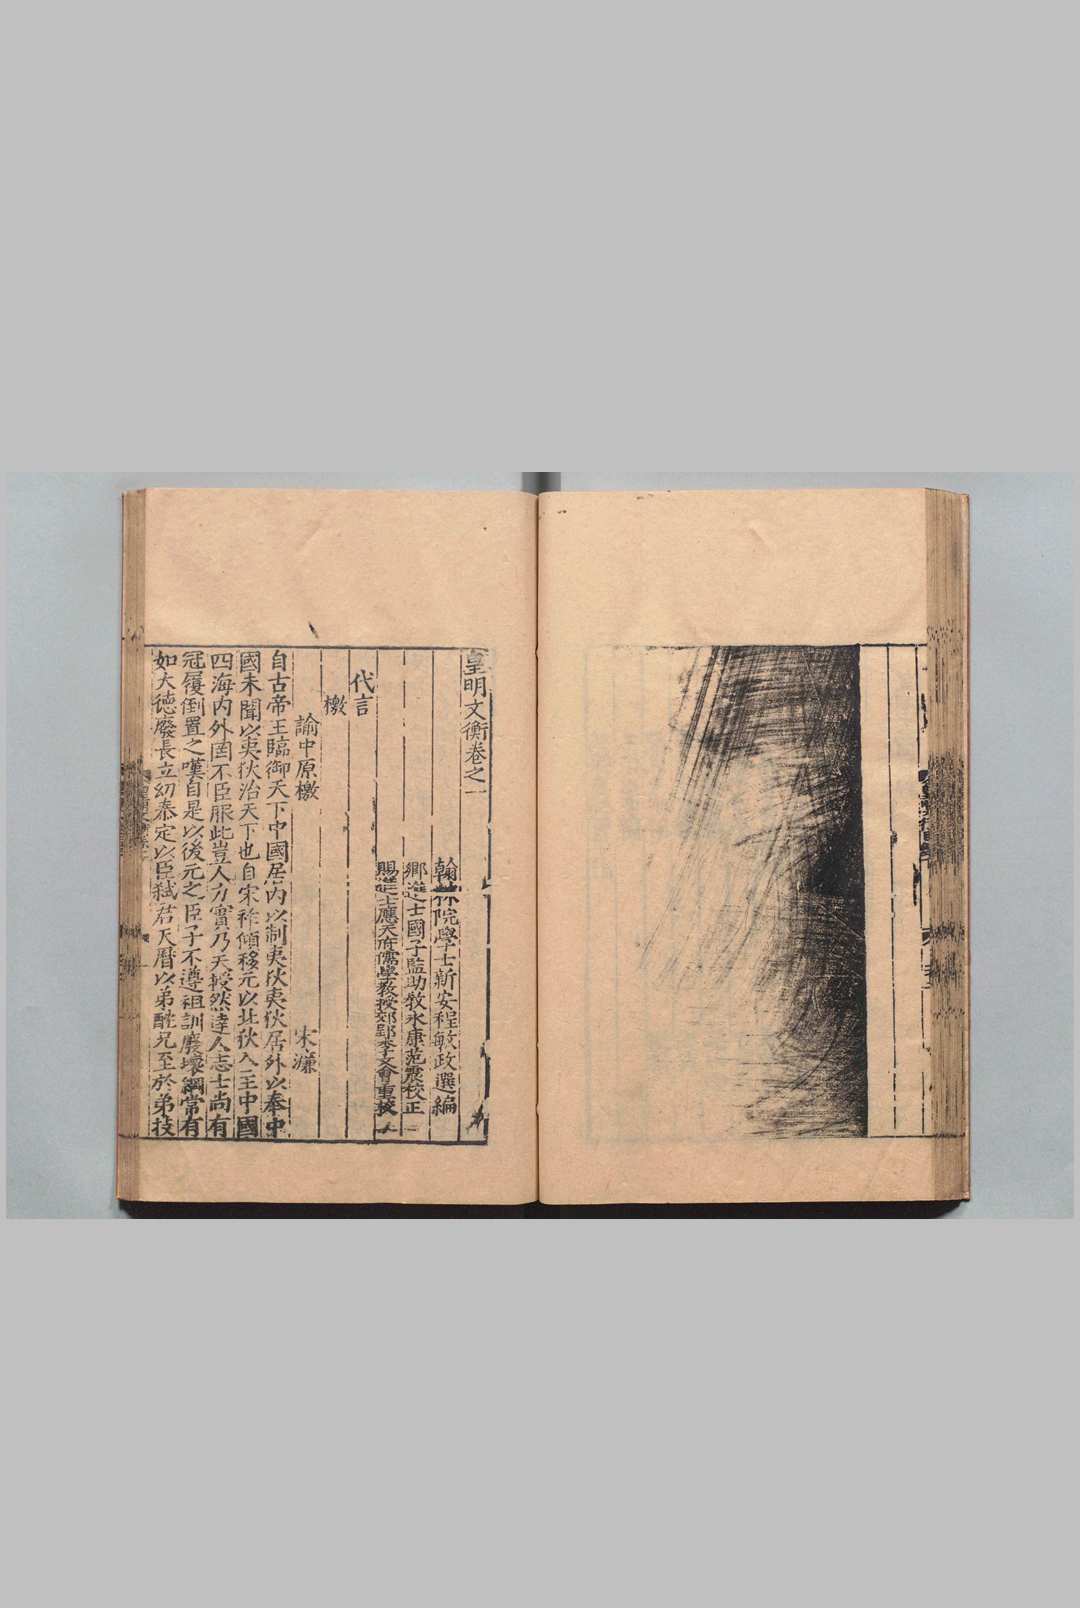 皇明文衡卷之一
翰林院學士新安程敏政選編
鄉進士國子監助教永康范震校正
賜進士應天府儒學教授郊郢李文會重校
代言
檄
諭中原檄
宋濂
自古帝王臨御天下中國居內以制夷狄夷狄居外以奉中
國未聞以夷狄治天下也自宋祚傾移元以北狄入主中國
四海內外罔不臣服此豈人力實乃天授然達人志士尚有
冠履倒置之嘆自是以後元之臣子不遵祖訓廢壞綱常有
如大德廢長立幼泰定以臣弒君天曆以弟酖兄至於弟妓